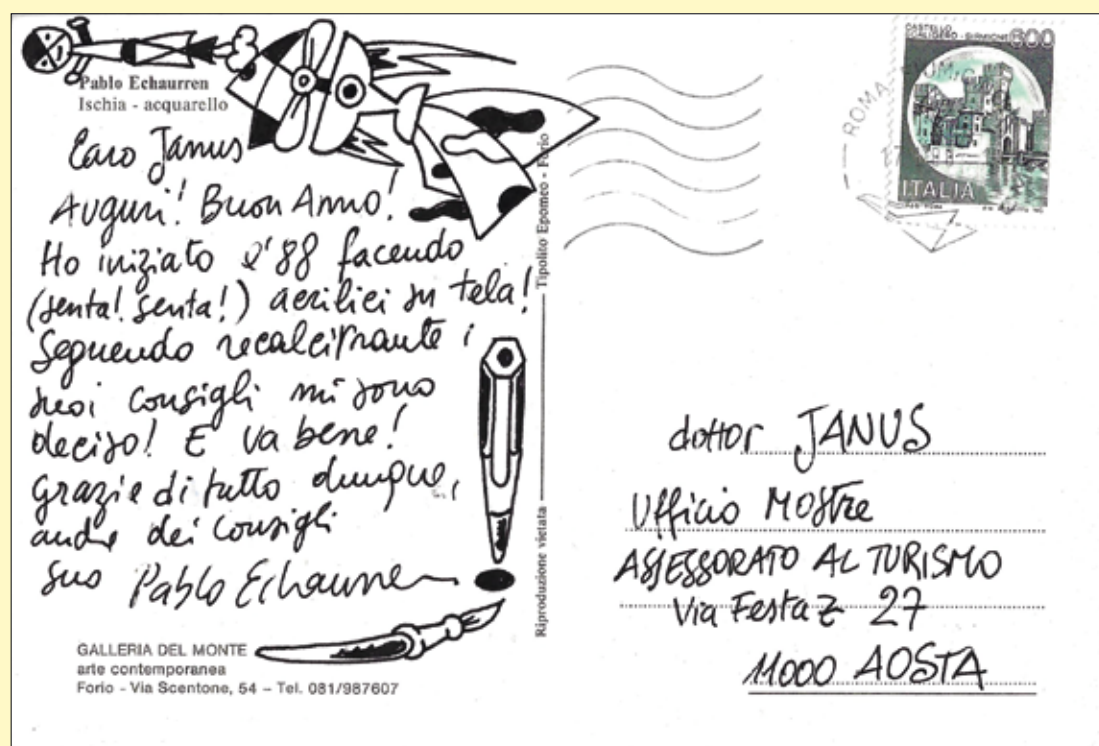 Pablo Echaurren
Ischia - acquarello
Caro Janus
Auguri! Buon Anno!
Ho iniziato l'88 facendo
(senta! senta!) acrilici su tela!
Seguendo recalcitrante i
suoi consigli mi sono
deciso! E va bene!
grazie di tutto dunque,
anche dei consigli
suo Pablo Echaurren
GALLERIA DEL MONTE
arte contemporanea
Forio - Via Scentone, 54 – Tel. 081/987607
Riproduzione vietata — Tipolito Epomeo - Forio
CASTELLO
SCALIGERO - SIRMIONE 600
ITALIA
ROMA
dottor JANUS
Ufficio Mostre
ASSESSORATO AL TURISMO
Via Festaz 27
11000 AOSTA